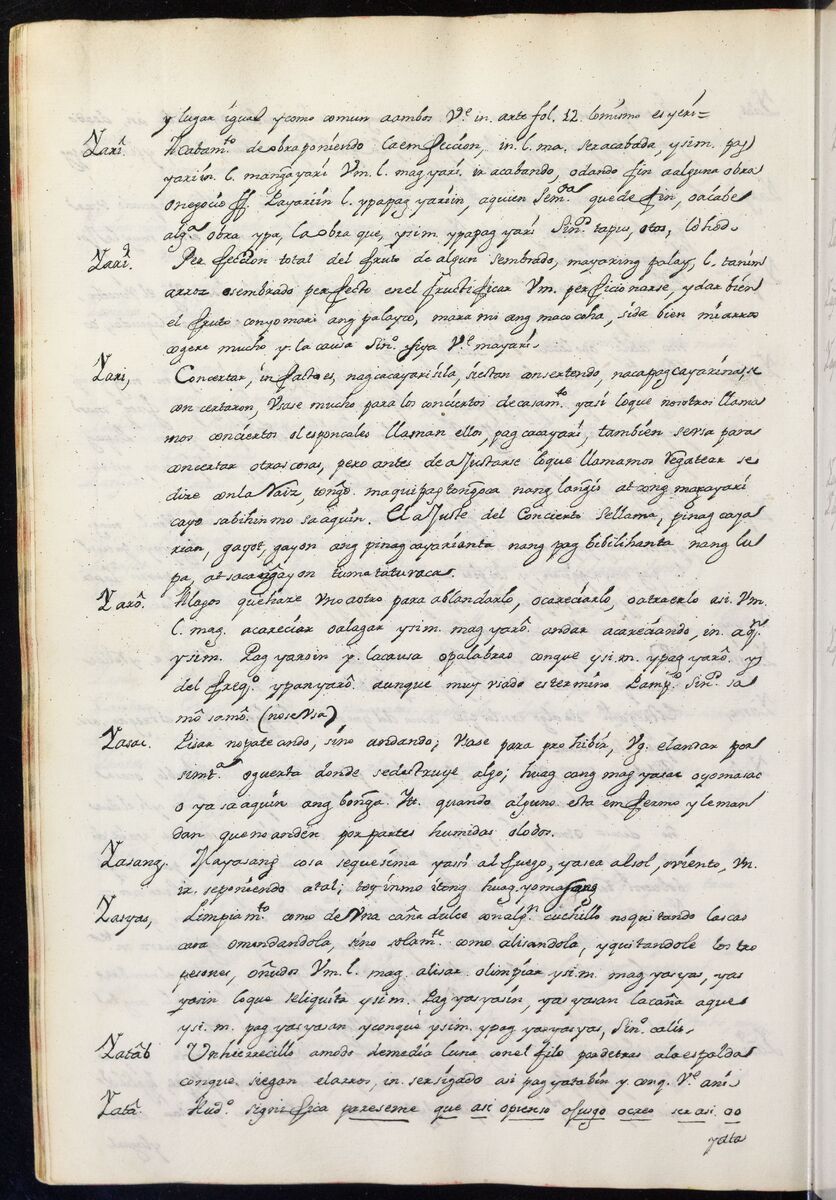 y lugar igual y como comun a ambos V.e in. arte fol. 12. lo mismo es yeri=
Yari. Acabam.to de obra poniendo la emfeccion, in. l. ma. ser acabada, y sim. pag
yariin. l. mangayari Vm. l. mag yari. ir acabando, o dando fin a alguna obra
o negocio ff. Payariin l. ypapag yariin, a quien quede fin, o acabe
alg.a obra ypa, la obra que, y sim. ypapag yari Sin.o tapus, otos, lohod.
Yari. Perfeccion total del fruto de algun sembrado, mayaring palay, l. tanim
arroz o sembrado perfecto en el fructificar Vm. perficionarse, y dar bien
el fruto con yomari ang palayco, marami ang macocoha, si da bien mi arros
cogere mucho y. la causa Sin.o V.e mayari.
Yari, Concertar, in falto es, nagcacayari sila, si estan consertendo, nacapagcayarina, se
con certaron, Vsase mucho para los conciertos de casam.to y asi lo que nosotros llama
mos conciertos o lesponcales llaman ellos, pag cacayari, tambien se vsa para
concertar otras cosas, pero antes de aJustarse lo que llamamos Regatear se
dire con la Raiz, tongo. maquipagtongoca nang langis at cong mayayari
cayo sabihin mo sa aquin. El aJuste del Concierto se llama, pinag caya
rian, gayot, gayon ang pinag cayarianta nang pag bibilihanta nang lu
pa, at sacangayon tumataturaca.
Yaro. Alagos que hare Vno a otro para ablandarlo, o careciarlo, o atraerlo asi. Vm.
l. mag. acareciar o alagar y sim. mag yaro. andar acareciando, in. aq.n
y sim. Pag yaroin y. la causa o palabras con que y sim. ypag yaro. y
del freq.o ypanyaro. aunque muy vsado es termino Pamp.o Sin.o sa
mo samo. (no se Vsa)
Yasac. Pisar no pateando, sino andando; Vsase para prohibir, Vg. el andar por
sem.ta o guerta donde se destruye algo; huag cang mag yasac o yomasac
o ya sa aquin ang bonga. It. quando alguno esta emfermo y le man
dan que no anden por partes humidas o lodos.
Yasang. Mayasang cosa sequesima y asi al fuego, ya sea al sol, o viento, Vm.
ir. se poniendo a tal; toyin mo itong huag yomasang
Yasyas, Limpiam.to como de Vna caña dulce con alg.n cuchillo no quitando la cas
cara o mondandola, sino solam.te como alisandola, y quitandole los tro
pesones, o ñudos Vm. l. mag. alisar o limpiar y sim. mag yasyas, yas
yasin lo que se liquita y sim. Pag yasyasin, yasyasan la caña a que
y si. m. pag yasyasan y con que y sim. ypag yasyas, Sin.o calis.
Yatab Un hierrecillo a modo de media luna con el filo por detras a la espalda
con que siegan el arros, in. ser sigado asi pag yatabin y. conq. V.e ani
Yata. Aud.o significa pareseme que asi o pienso o fusgo o creo ser asi. oo
yata